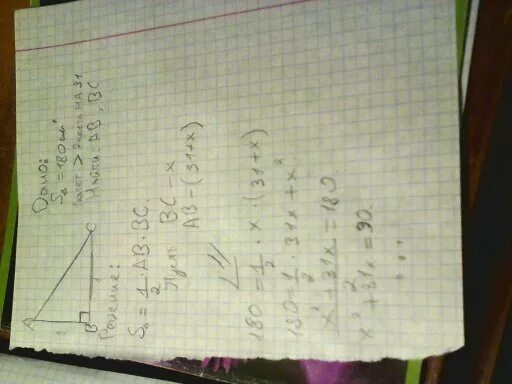 Дано:
S△ = 180 см²
1 катет > 2 катета на 31.
Найти: AB, BC
A
B
C
Решение:
S△ = 1/2 · AB · BC.
Пусть BC – x
AB – (31+x)
180 = 1/2 · x · (31+x)
180 = 1/2 · 31x + x²
x² + 31x / 2 = 180
x² + 31x = 90.
...